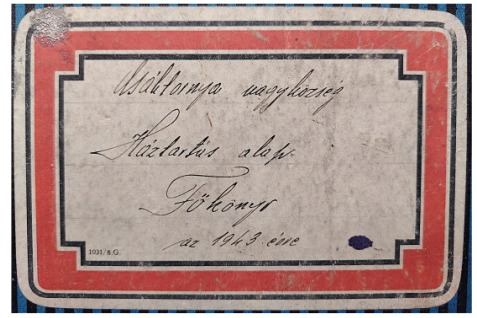 Csáktornya nagyközség
Háztartás alap
Főkönyv
az 1943 évre
1031/8.G.